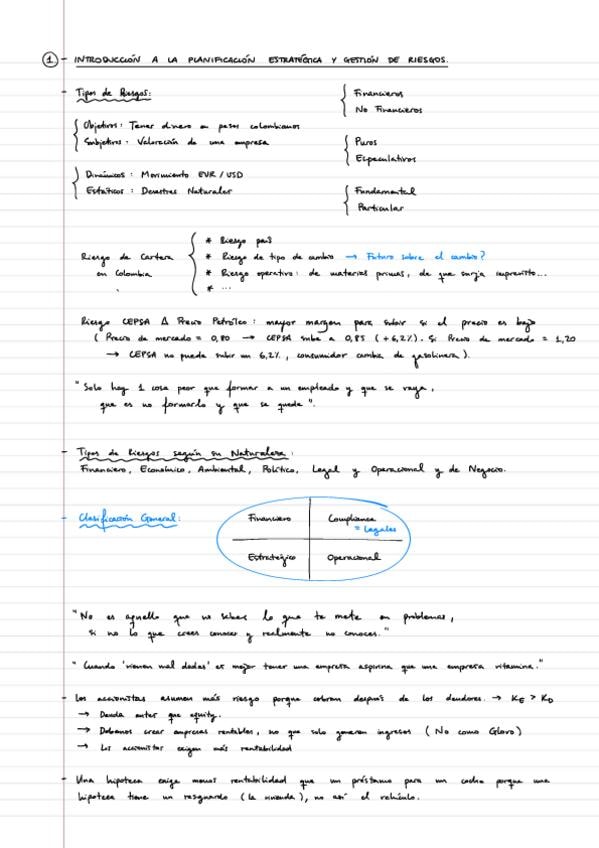 ① - INTRODUCCIÓN A LA PLANIFICACIÓN ESTRATÉGICA Y GESTIÓN DE RIESGOS.
- Tipos de Riesgos:
{ Financieros
No Financieros
{ Objetivos: Tener dinero en pesos colombianos
Subjetivos: Valoración de una empresa
{ Puros
Especulativos
{ Dinámicos: Movimiento EUR / USD
Estáticos: Desastres Naturales
{ Fundamental
Particular
Riesgo de Cartera
en Colombia
{ * Riesgo país
* Riesgo de tipo de cambio → Futuro sobre el cambio?
* Riesgo operativo: de materias primas, de que surja imprevisto...
* ...
Riesgo CEPSA Δ Precio Petróleo: mayor margen para subir si el precio es bajo
( Precio de mercado = 0,80 → CEPSA sube a 0,85 (+6,2%). Si Precio de mercado = 1,20
→ CEPSA no puede subir un 6,2%, consumidor cambia de gasolinera).
"Solo hay 1 cosa peor que formar a un empleado y que se vaya,
que es no formarlo y que se quede".
- Tipos de Riesgos según su Naturaleza:
Financiero, Económico, Ambiental, Político, Legal y Operacional y de Negocio.
- Clasificación General:
Financiero
Compliance
= Legales
Estratégico
Operacional
"No es aquello que no sabes lo que te mete en problemas,
si no lo que crees conocer y realmente no conoces."
"Cuando 'vienen mal dadas' es mejor tener una empresa aspirina que una empresa vitamina."
- Los accionistas asumen más riesgo porque cobran después de los deudores. → KE > KD
→ Deuda antes que equity.
→ Debemos crear empresas rentables, no que solo generen ingresos (No como Glovo)
→ Los accionistas exigen más rentabilidad
- Una hipoteca exige menos rentabilidad que un préstamo para un coche porque una
hipoteca tiene un resguardo (la vivienda), no así el vehículo.